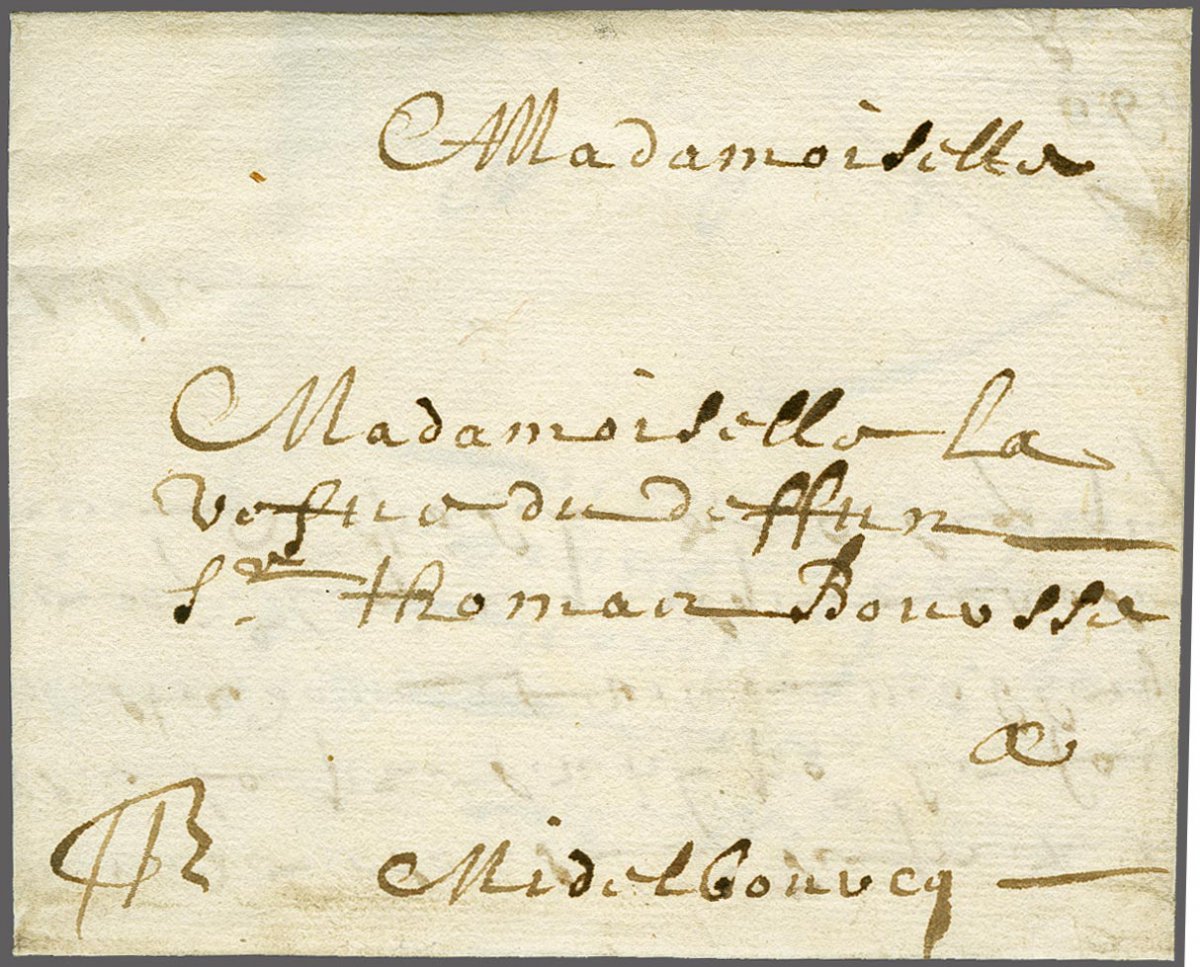 Madamoiselle
Madamoiselle la
vefue du deffun
Sr. thomas Boursse
a
Midelbourcq